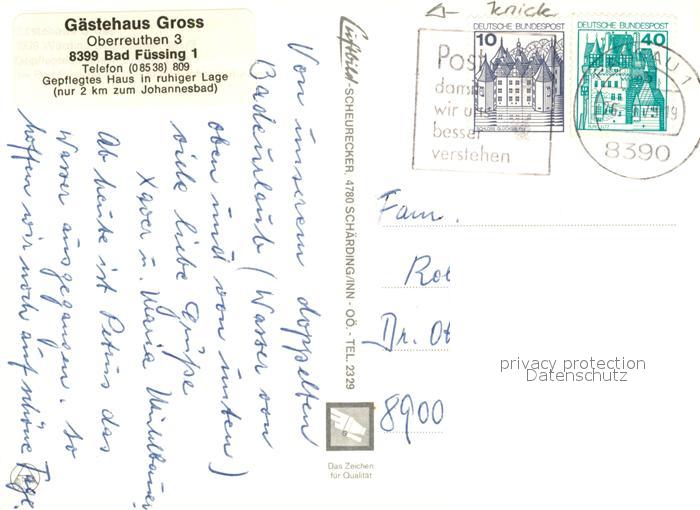 Gästehaus Gross
Oberreuthen 3
8399 Bad Füssing 1
Telefon (08538) 809
Gepflegtes Haus in ruhiger Lage
(nur 2 km zum Johannesbad)
Von unserem doppelten
Badeurlaub (Wasser von
oben und von unten)
viele liebe Grüße
Xaver u. Maria Mühlbauer
Ab heute ist Petrus das
Wasser ausgegangen. So
hoffen wir noch auf schöne Tage.
Luftbild-SCHEURECKER, 4780 SCHÄRDING/INN - OÖ. - TEL. 2329
Knick
Post
damit
wir uns
besser
verstehen
10 DEUTSCHE BUNDESPOST
SCHLOSS GLÜCKSBURG
DEUTSCHE BUNDESPOST 40
BURG ELTZ
8390
Fam.
Rot
Dr. Ot
8900
privacy protection
Datenschutz
Das Zeichen
für Qualität